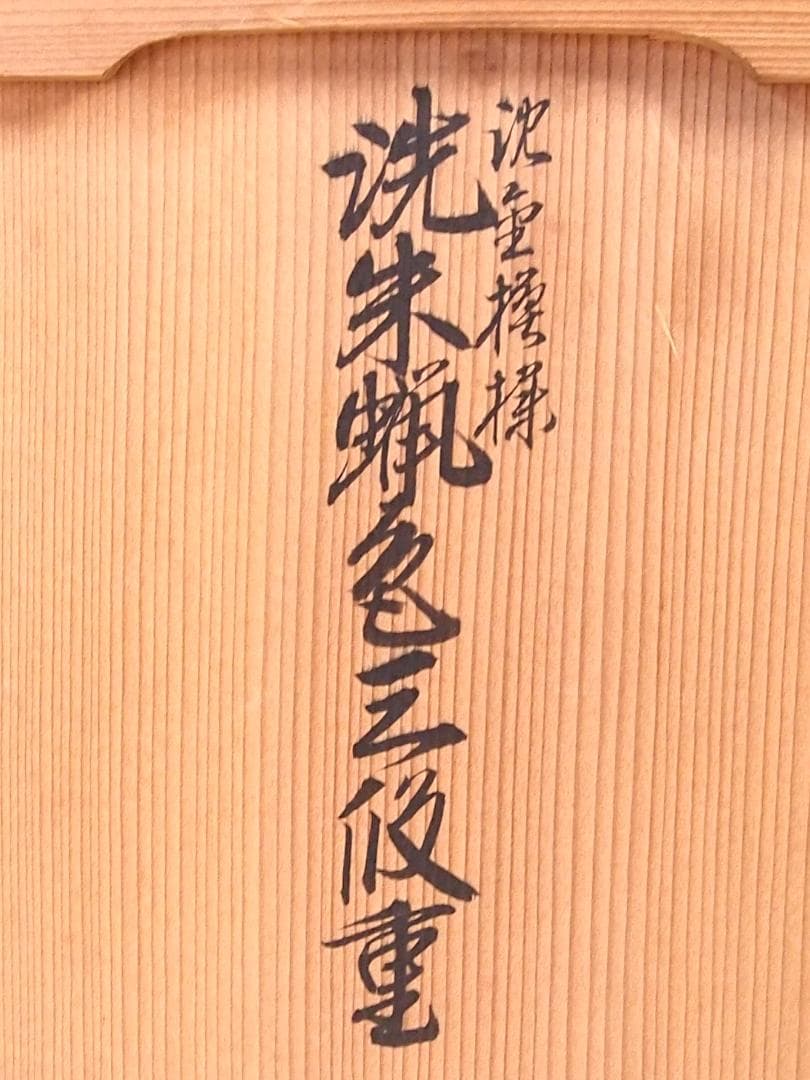 沈金模様
洗朱蝋色三段重